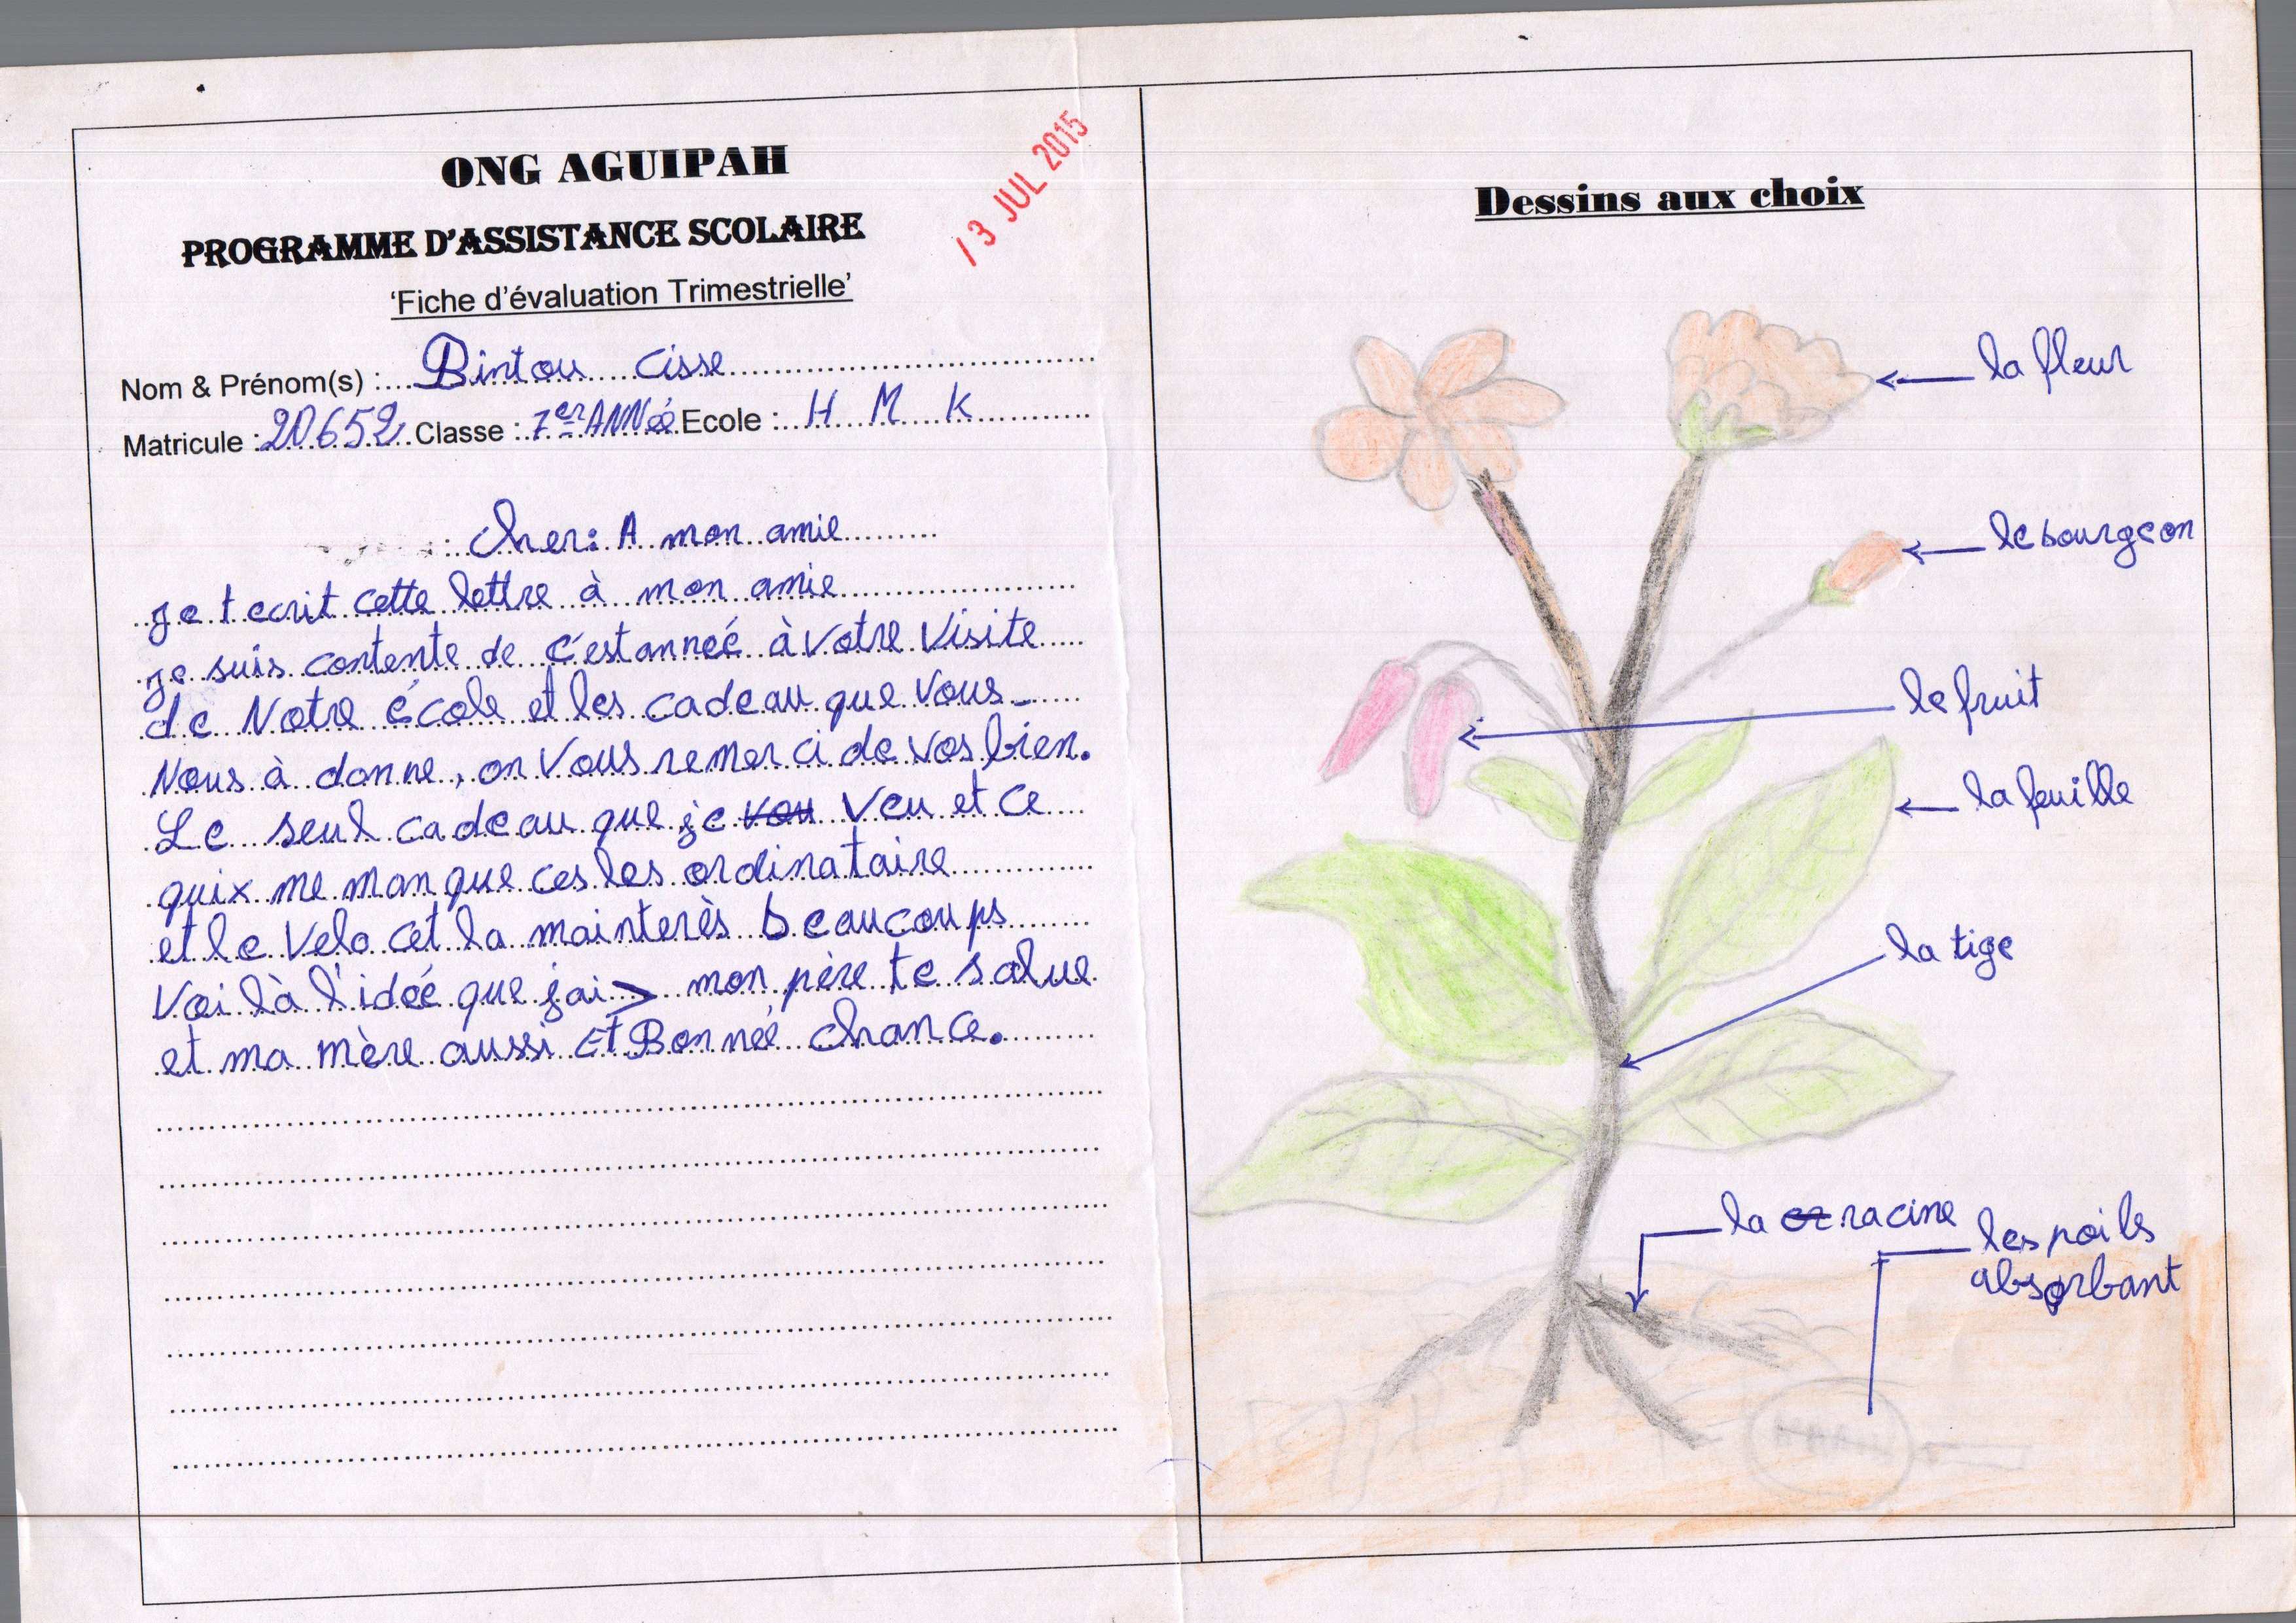 ONG AGUIPAH
PROGRAMME D'ASSISTANCE SCOLAIRE
13 JUL 2015
'Fiche d'évaluation Trimestrielle'
Nom & Prénom(s) : Bintou Cisse
Matricule : 20652 Classe : 7er ANNéé Ecole : H M K
: Cher: A mon amie
je t ecrit cette lettre à mon amie
je suis contente de c'estanneé à votre Visite
de Notre école et les cadeau que vous
Nous à donne, on Vous remerci de vos bien.
Le seul cadeau que je vou veu et ce
quix me manque ces les ordinataire
et le Velo cet la mainterès beaucoups
Voilà l'ideé que jai > mon père te salue
et ma mère aussi Et Bonneé chance.
Dessins aux choix
la fleur
le bourgeon
le fruit
la feuille
la tige
la racine
les poils
absorbant